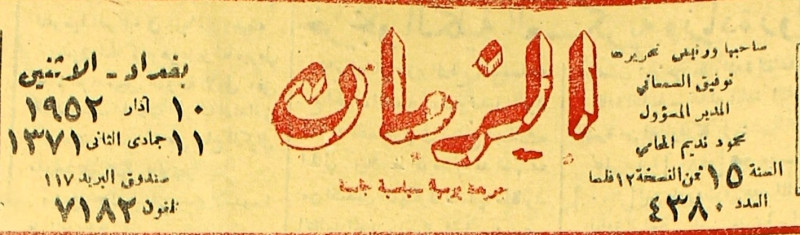 صاحبها ورئيس تحريرها
توفيق السمعاني
المدير المسؤول
محمود نديم المحامي
السنة ١٥ ثمن النسخة ١٢ فلسا
العدد ٤٣٨٠
الزمان
جريدة يومية سياسية جامعة
بغداد - الاثنين
١٠ اذار ١٩٥٢
١١ جمادى الثانى ١٣٧١
صندوق البريد ١١٧
تلفون ٧١٨٢